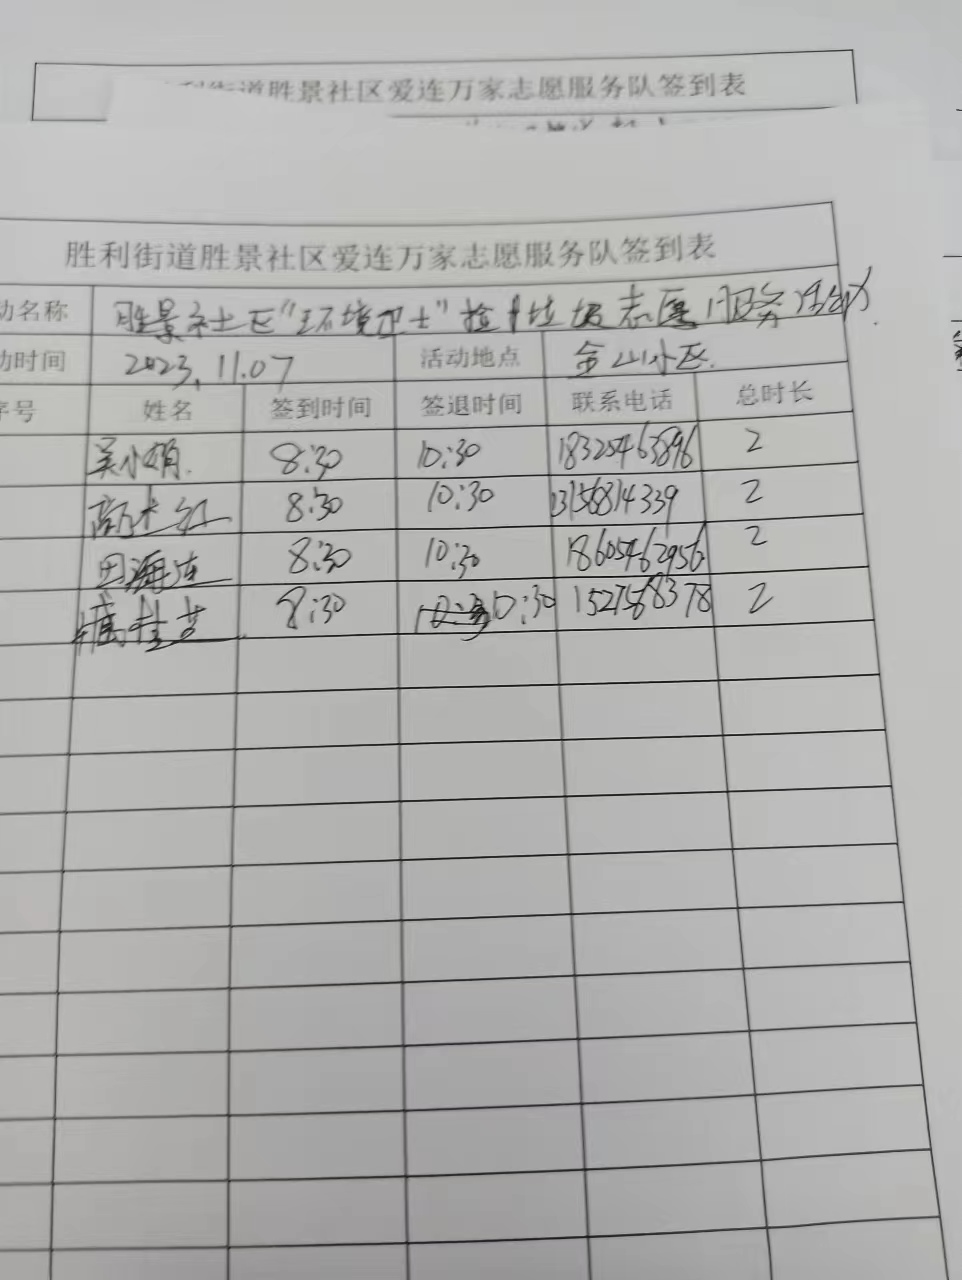 利街道胜景社区爱连万家志愿服务队签到表
胜利街道胜景社区爱连万家志愿服务队签到表
动名称 胜景社区“环境卫士”捡拾垃圾志愿服务活动
动时间 2023.11.07 活动地点 金山小区.
序号 姓名 签到时间 签退时间 联系电话 总时长
吴小娟. 8:30 10:30 18325463896 2
8:30 10:30 13156814339 2
田海连 8:30 10:30 18605462956 2
8:30 10:30 2